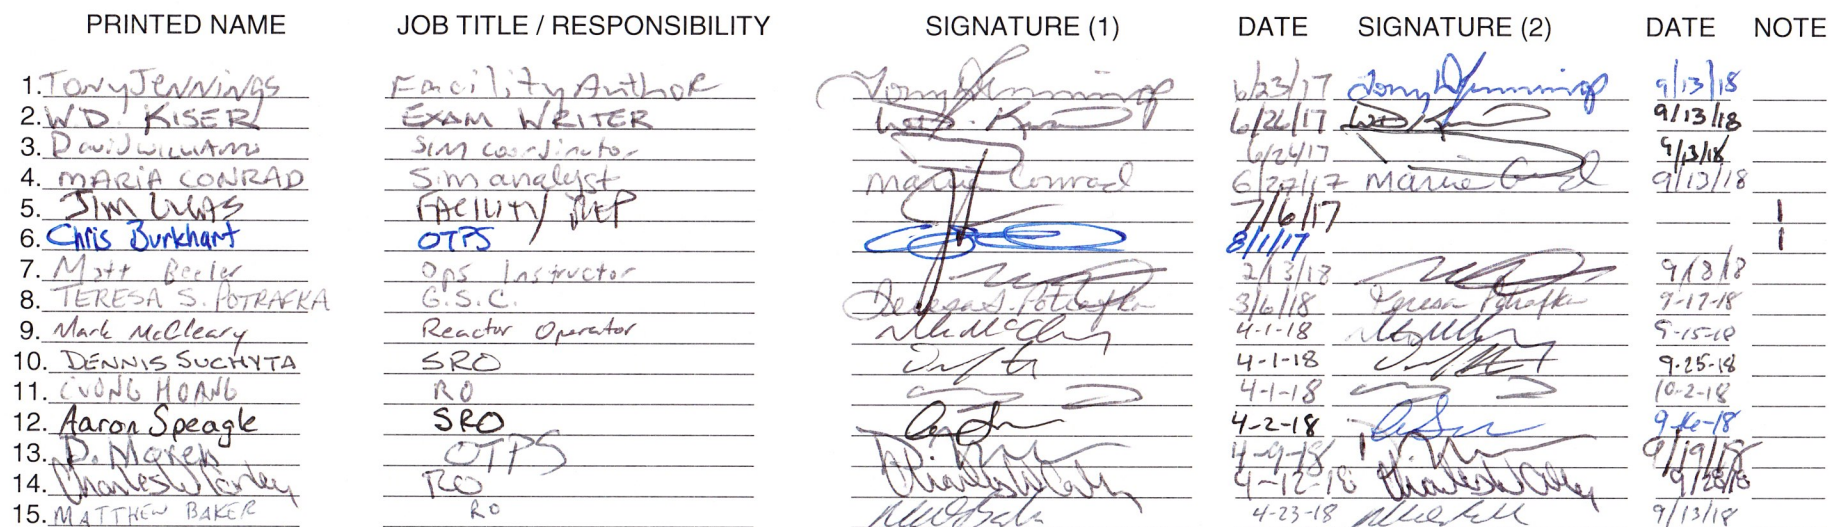 PRINTED NAME JOB TITLE / RESPONSIBILITY SIGNATURE (1) DATE SIGNATURE (2) DATE NOTE
1. Tony Jennings Facility Author Tony Jennings 6/23/17 Tony Jennings 9/13/18
2. W.D. KISER EXAM WRITER 6/26/17 9/13/18
3. David Williams Sim coordinator 6/26/17 9/13/18
4. MARIA CONRAD Sim analyst Maria Conrad 6/27/17 Maria 9/13/18
5. JIM LUCAS FACILITY REP 7/6/17 1
6. Chris Burkhart OTPS 8/1/17 1
7. Matt Beeler Ops Instructor 2/13/18
8. TERESA S. POTRAFKA G.S.C. Teresa S. Potrafka 3/6/18 Teresa Potrafka 9-17-18
9. Mark McCleary Reactor Operator 4-1-18 9-15-18
10. DENNIS SUCHYTA SRO 4-1-18 9-25-18
11. CUONG HOANG RO 4-1-18 10-2-18
12. Aaron Speagle SRO 4-2-18
13. D. OTPS 4-9-18 9/19/18
14. Charles RO 4-12-18 9/28/18
15. MATTHEW BAKER RO 4-23-18 9/13/18